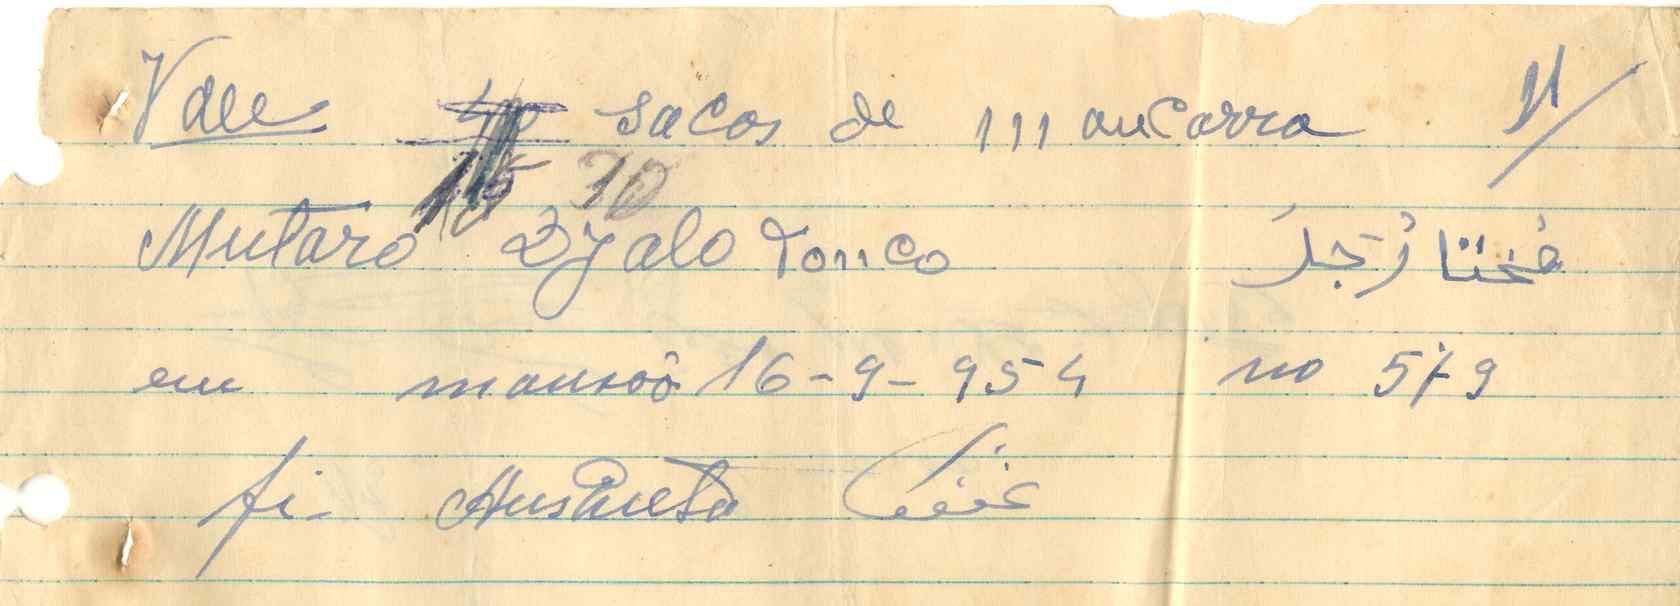 Vale sacos de mancarra
15 10
Mutaro Djalo Tonco مُختارُجَلُ
em mansoô 16-9-954 no 579
fi